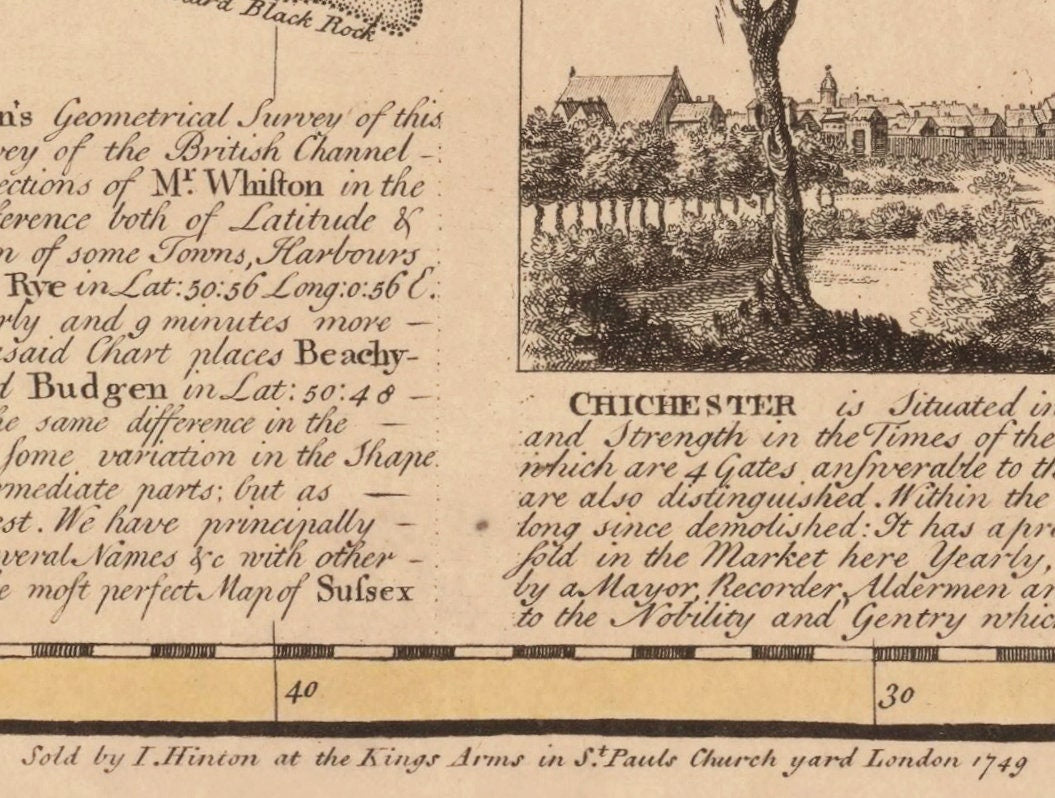 Black Rock
Geometrical Survey of this
of the British Channel -
ections of Mr. Whiston in the
ference both of Latitude &
n of some Towns, Harbours
Rye in Lat: 50:56 Long: 0:56 E.
rly and 9 minutes more —
said Chart places Beachy-
d Budgen in Lat: 50:48 —
he same difference in the —
some variation in the Shape
rmediate parts; but as —
est. We have principally -
veral Names &c with other -
e most perfect Map of Sussex
CHICHESTER is Situated in
and Strength in the Times of the
which are 4 Gates answerable to th
are also distinguished. Within the
long since demolished: It has a pr
sold in the Market here Yearly,
by a Mayor, Recorder, Aldermen an
to the Nobility and Gentry which
40
30
Sold by I. Hinton at the Kings Arms in St. Pauls Church yard London 1749